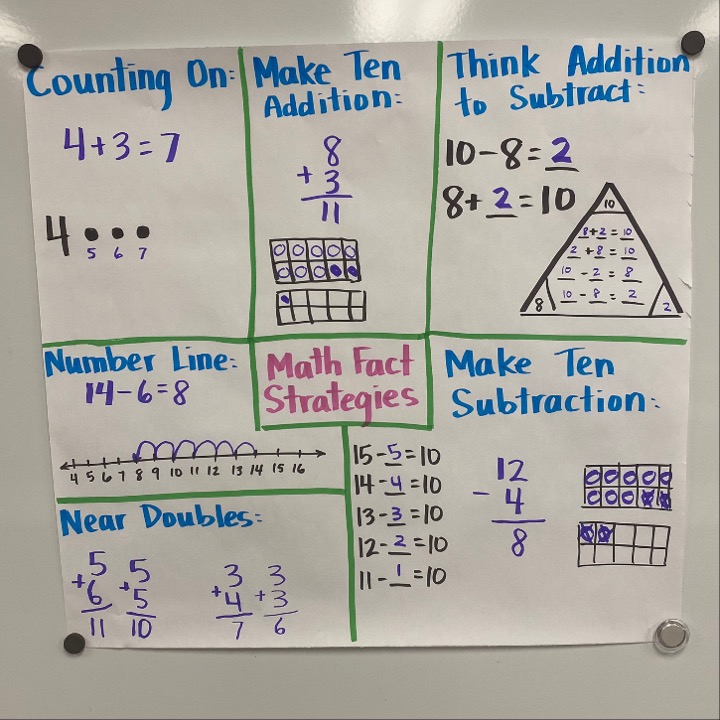 Counting On:
4+3=7
4
5 6 7
Make Ten
Addition:
8
+ 3
11
Think Addition
to Subtract:
10-8=2
8+2=10
10
8+2=10
2+8=10
10-2=8
10-8=2
8 2
Number Line:
14-6=8
4 5 6 7 8 9 10 11 12 13 14 15 16
Math Fact
Strategies
Make Ten
Subtraction:
15-5=10
14-4=10
13-3=10
12-2=10
11-1=10
12
- 4
8
Near Doubles:
5 5
+6 +5
11 10
3 3
+4 +3
7 6